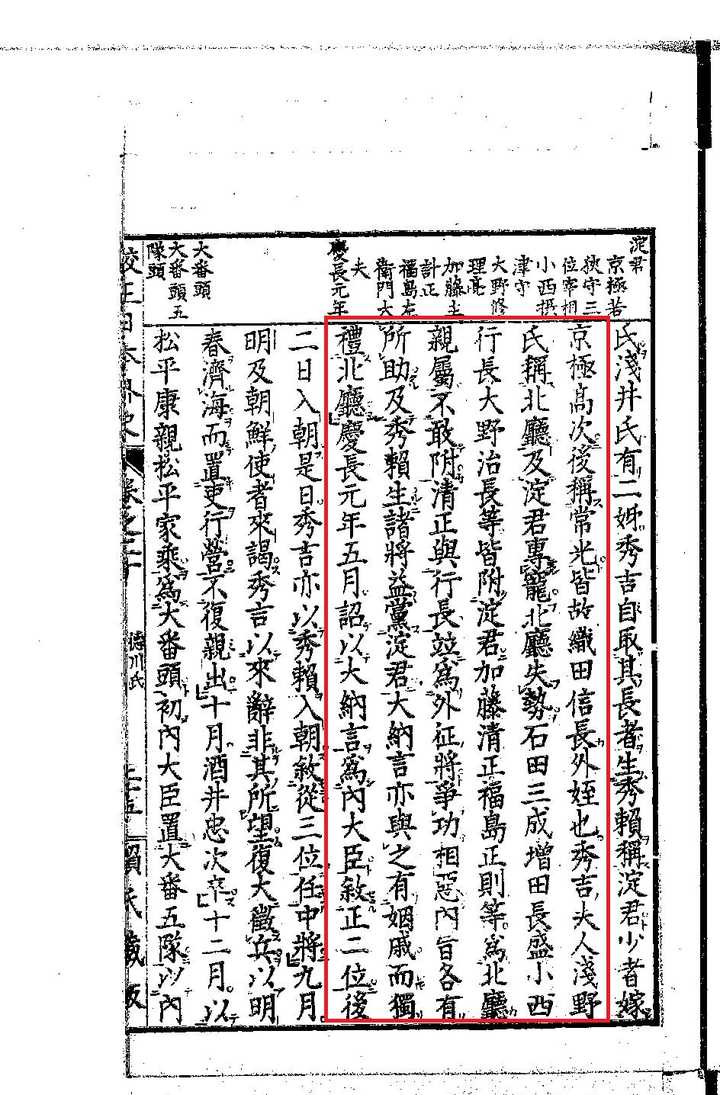 淀君
京極若
狹守三
位宰相
小西摂
津守
大野修
理亮
加藤主
計正
福島左
衛門大
夫
慶長元年
大番頭
大番頭五
隊頭
氏淺井氏有二姊秀吉自取其長者生秀賴稱淀君少者嫁
京極高次後稱常光皆故織田信長外姪也秀吉夫人淺野
氏稱北廳及淀君專寵北廳失勢石田三成增田長盛小西
行長大野治長等皆附淀君加藤清正福島正則等爲北廳
親屬不敢附清正與行長竝爲外征將爭功相惡內旨各有
所助及秀賴生諸將益黨淀君大納言亦與之有姻戚而獨
禮北廳慶長元年五月詔以大納言爲內大臣敘正二位後
二日入朝是日秀吉亦以秀賴入朝敘從三位任中將九月
明及朝鮮使者來謁秀吉以來辭非其所望復大徵兵以明
春濟海而置吏行營不復親出十月酒井忠次卒十二月以
松平康親松平家乘爲大番頭初內大臣置大番五隊以內
校正日本外史 卷之二十 德川氏 賴氏藏版